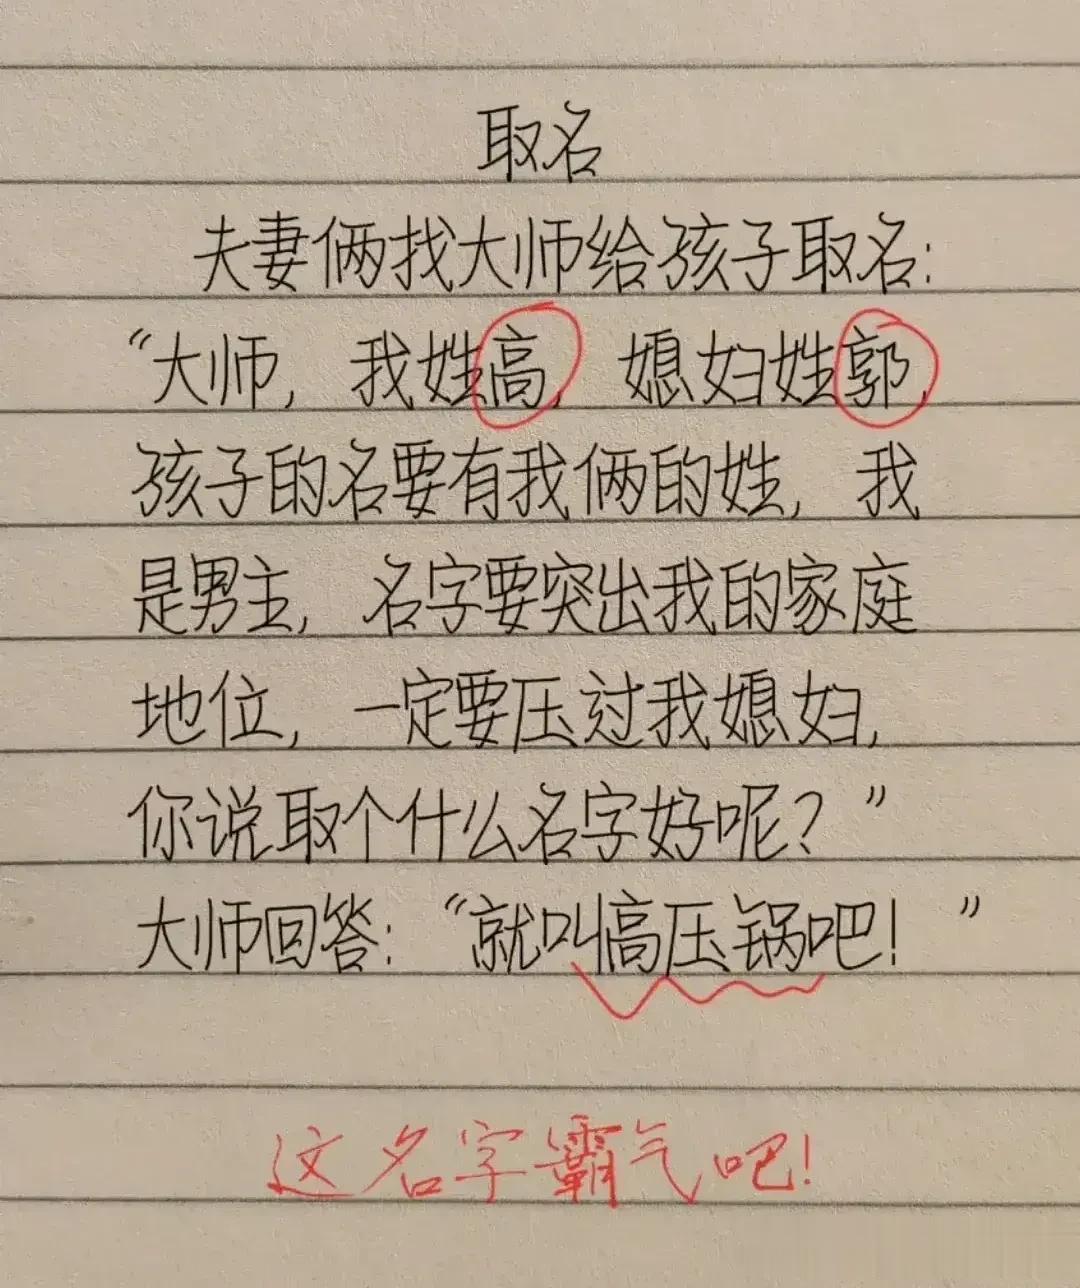 取名
夫妻俩找大师给孩子取名:
“大师, 我姓高, 媳妇姓郭,
孩子的名要有我俩的姓, 我
是男主, 名字要突出我的家庭
地位, 一定要压过我媳妇,
你说取个什么名字好呢？”
大师回答:“就叫高压锅吧! ”
这名字霸气吧!